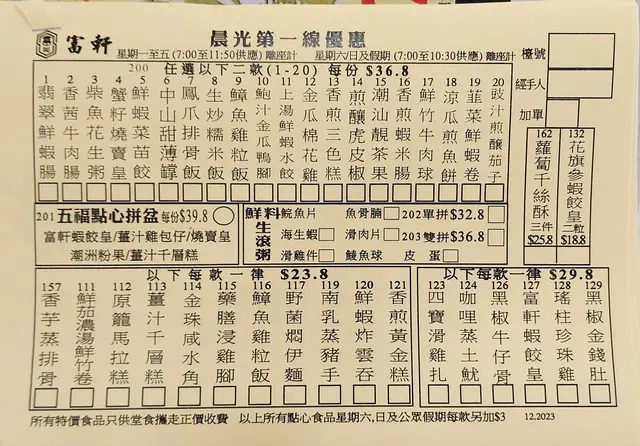 富軒
晨光第一線優惠
星期一至五 (7:00至11:50供應) 離座計 星期六/日及假期 (7:00至10:30供應) 離座計
檯號
經手人
加單
200 任選以下二款(1-20) 每份 $36.8
1 翡翠腸
2 香茜牛肉腸
3 柴魚花生粥
4 蟹籽燒賣皇
5 鮮蝦菜苗餃
6 中山甜薄罉
7 鳳爪排骨飯
8 生炒糯米飯
9 鱆魚雞粒飯
10 鮑汁金瓜鴨腳
11 上湯鮮蝦水餃
12 金瓜棉花雞
13 香煎糕
14 煎釀虎皮椒
15 潮汕靚茶果
16 香茜蝦米腸
17 鮮竹牛肉球
18 涼瓜煎魚餅
19 菜鮮蝦卷
20 豉汁煎釀茄子
162 蘿蔔千絲酥 三件 $25.8
132 花旗參蝦餃皇 二粒 $18.8
201 五福點心拼盆 每份$39.8
富軒蝦餃皇/薑汁雞包仔/燒賣皇
潮洲粉果/薑汁千層糕
鮮料生滾粥
鯇魚片 魚骨腩 202單拼$32.8
海生蝦 滑肉片 203雙拼$36.8
滑雞件 鯪魚球 皮蛋
以下每款一律 $23.8
157 香芋蒸排骨
111 鮮茄濃湯鮮竹卷
112 原籠馬拉糕
113 薑汁千層糕
114 金珠咸水角
115 藥膳浸雞腳
116 鱆魚雞粒飯
117 野菌燜伊麵
119 南乳蒸豬手
120 鮮蝦炸雲吞
121 香煎黃金糕
以下每款一律 $29.8
123 四寶滑雞扎
124 咖哩蒸土魷
126 黑椒牛仔骨
127 富軒蝦餃皇
128 瑤柱珍珠雞
129 黑椒金錢肚
所有特價食品只供堂食攜走正價收費 以上所有點心食品星期六,日及公眾假期每款另加$3 12.2023